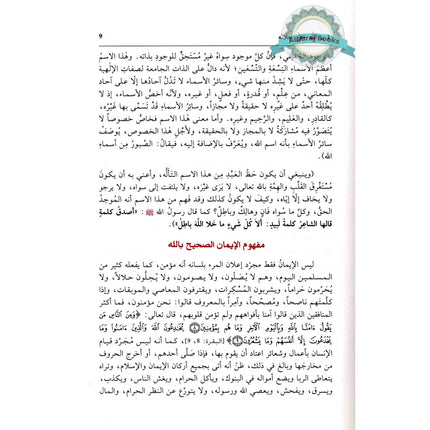 ٩
فإن كل موجود سواه غير مستحق للوجود بذاته. وهذا الاسم
أعظم الأسماء التسعة والتسعين؛ لأنه دال على الذات الجامعة لصفات الإلهية
كلها، حتى لا يشذ منها شيء، وسائر الأسماء لا تدل آحادها إلا على آحاد
المعاني، من علم، أو قدرة، أو فعل، أو غيره، ولأنه أخص الأسماء إذ لا
يطلقه أحد على غيره لا حقيقة ولا مجازاً، وسائر الأسماء قد تسمى بها غيره،
كالقادر، والعليم، والرحيم وغيره. وأما معنى هذا الاسم فخاص خصوصاً لا
يتصور فيه مشاركة لا بالمجاز ولا بالحقيقة، ولأجل هذا الخصوص، يوصف
سائر الأسماء بأنه اسم الله، ويعرف بالإضافة إليه، فيقال: الصبور من أسماء
الله).
(وينبغي أن يكون حظ العبد من هذا الاسم التأله، وأعني به أن يكون
مستغرق القلب والهمة بالله تعالى، لا يرى غيره، ولا يلتفت إلى سواه، ولا يرجو
ولا يخاف إلا إياه، وكيف لا يكون كذلك وقد فهم من هذا الاسم أنه الموجد
الحق، وكل ما سواه فان وهالك وباطل؟ كما قال رسول الله ﷺ: «أصدق كلمة
قالها الشاعر كلمة لبيد: ألا كل شيء ما خلا الله باطل»).
مفهوم الإيمان الصحيح بالله
ليس الإيمان فقط مجرد إعلان المرء بلسانه أنه مؤمن، كما يفعله كثير من
المسلمين اليوم، وهم لا يصلون، ولا يصومون، ولا يحلون حلالاً، ولا
يحرمون حراماً، ويشربون المسكرات، ويقترفون المعاصي والموبقات، وإذا
كلمتهم ناصحاً، ومصححاً، وآمراً بالمعروف قالوا: نحن مؤمنون، فما أكثر
المنافقين الذين قالوا آمنا بأفواههم ولم تؤمن قلوبهم، قال تعالى: ﴿ومن الناس من
يقول ءامنا بالله وباليوم الآخر وما هم بمؤمنين ۝ يخادعون الله والذين ءامنوا وما
يخدعون إلا أنفسهم وما يشعرون ۝﴾ [البقرة: 8، 9]، كما أنه ليس مجرد قيام
الإنسان بأعمال وشعائر اعتاد أن يقوم بها، فإذا صلى أحدهم، أو أخرج الحروف
من مخارجها وبالغ في ذلك، ظن أنه أتى بجميع أركان الإيمان والإسلام، وتراه
يتعاطى الربا ويضع أمواله في البنوك، ويأكل الحرام، ويغش الناس، ويكذب،
ويسرق، ويفحش، ويعصي الله ورسوله، ولا يتورع عن النظر الحرام، والمال